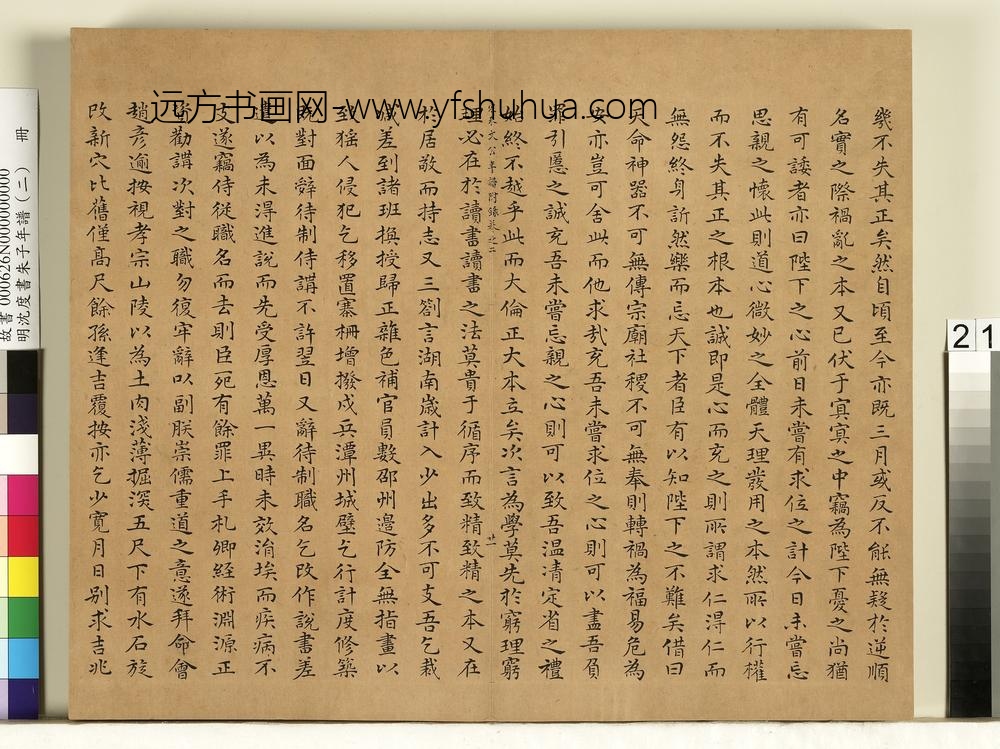 幾不失其正矣然自頃至今亦既三月或反不能無疑於逆順
名實之際禍亂之本又已伏于冥冥之中竊為陛下憂之尚猶
有可諉者亦曰陛下之心前日未嘗有求位之計今日未嘗忘
思親之懷此則道心微妙之全體天理發用之本然所以行權
而不失其正之根本也誠即是心而充之則所謂求仁得仁而
無怨終身訢然樂而忘天下者臣有以知陛下之不難矣借曰
天命神器不可無傳宗廟社稷不可無奉則轉禍為福易危為
安亦豈可舍此而他求哉充吾未嘗求位之心則可以盡吾負
罪引慝之誠充吾未嘗忘親之心則可以致吾温凊定省之禮
始終不越乎此而大倫正大本立矣次言為學莫先於窮理窮
朱文公年譜附錄卷之二
廿一
理必在於讀書讀書之法莫貴于循序而致精致精之本又在
於居敬而持志又三劄言湖南歲計入少出多不可支吾乞裁
減差到諸班換授歸正雜色補官員數邵州邊防全無指畫以
致猺人侵犯乞移置寨柵增撥戍兵潭州城壁乞行計度修築
既對面辭待制侍講不許翌日又辭待制職名乞改作說書差
遣以為未得進說而先受厚恩萬一異時未效涓埃而疾病不
支遂竊侍從職名而去則臣死有餘罪上手札卿經術淵源正
資勸講次對之職勿復牢辭以副朕崇儒重道之意遂拜命會
趙彥逾按視孝宗山陵以為土肉淺薄掘深五尺下有水石旋
改新穴比舊僅高尺餘孫逢吉覆按亦乞少寬月日別求吉兆
远方书画网-www.yfshuhua.com
故書 000626N000000000
明沈度書朱子年譜(二) 冊
21